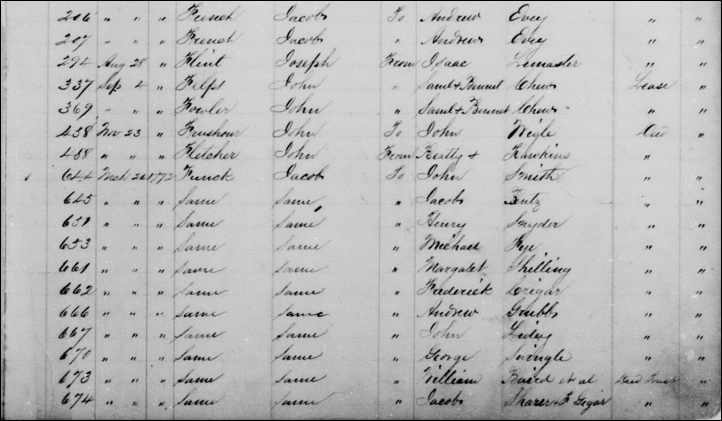 206 " " " French Jacob To Andrew Evey " "
207 " " " French Jacob " Andrew Evey " "
294 Aug 28 " Flint Joseph From Isaac Lemaster " "
337 Sep 4 " Felps John " Saml & Bennet Chew Lease "
369 " " " Fowler John " Saml & Bennet Chew " "
458 Nov 23 " John To John Deed "
488 " " " Fletcher John From Beatty & Hawkins " "
644 Mch 21 1772 Funck Jacob To John Smith " "
645 " " " Same Same " Jacob Bentz " "
651 " " " Same Same " Henry Snyder " "
653 " " " Same Same " Michael Fye " "
661 " " " Same Same " Margaret Shilling " "
662 " " " Same Same " Frederick Crigar " "
666 " " " Same Same " Andrew Grubb " "
667 " " " Same Same " John " "
670 " " " Same Same " George Swingle " "
673 " " " Same Same " William Baird et al Deed Trust "
674 " " " Same Same " Jacob Sharer & F " "